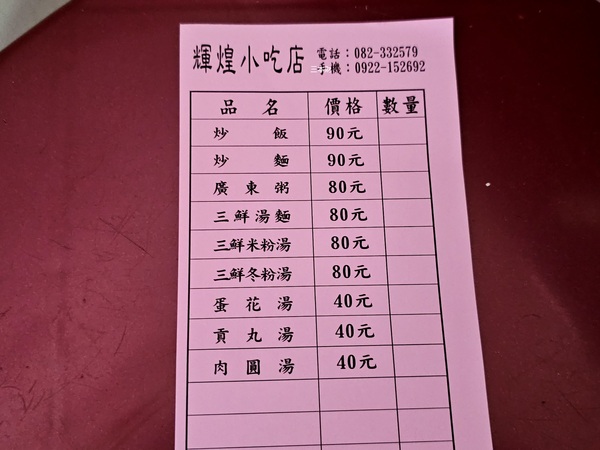 輝煌小吃店
電話：082-332579
手機：0922-152692
品名 價格 數量
炒飯 90元
炒麵 90元
廣東粥 80元
三鮮湯麵 80元
三鮮米粉湯 80元
三鮮冬粉湯 80元
蛋花湯 40元
貢丸湯 40元
肉圓湯 40元